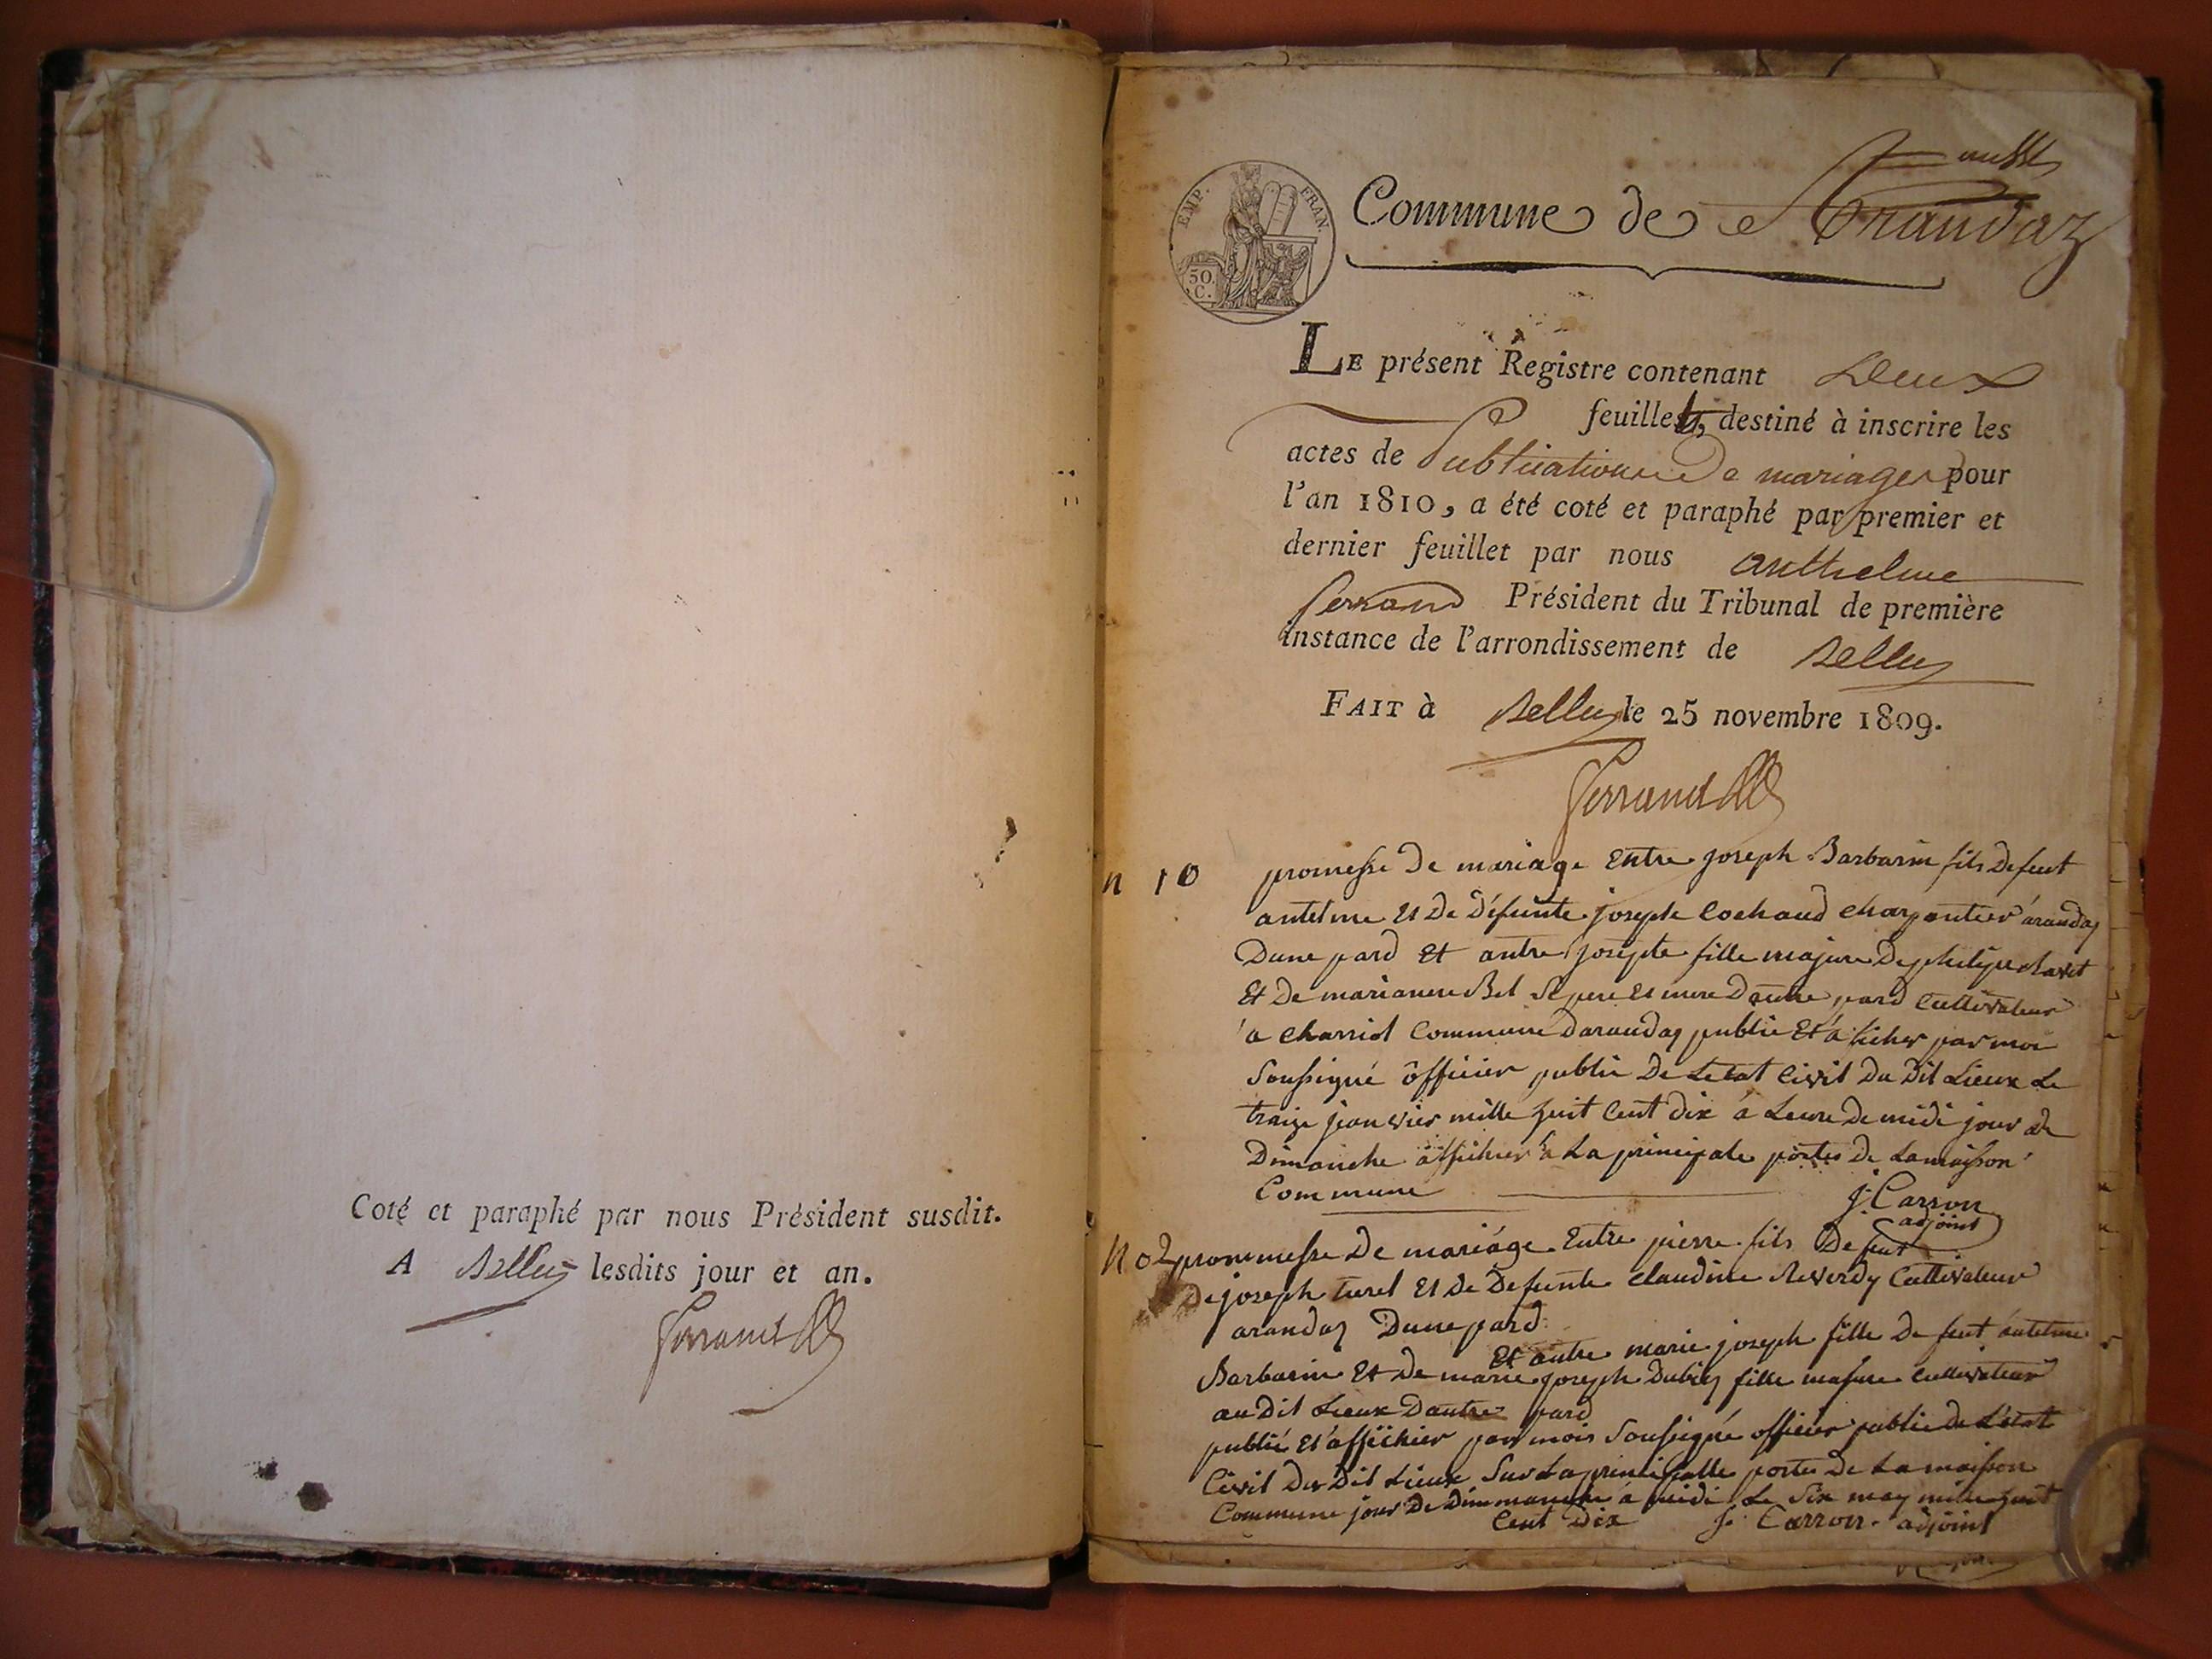 Coté et paraphé par nous Président susdit.
A Belley lesdits jour et an.
Ferrand
EMP. FRAN.
50. C.
Commune de Arandaz
LE présent Registre contenant Deux
feuillets, destiné à inscrire les
actes de Publications De mariages pour
l'an 1810, a été coté et paraphé par premier et
dernier feuillet par nous anthelme
ferrand Président du Tribunal de première
instance de l'arrondissement de Belley
FAIT à Belley le 25 novembre 1809.
Ferrand
n 10 promesse De mariage Entre joseph Barbarin fils Defeut
antelme Et De Défeunte josephe Cochaud Charpentier arandas
Dune pard Et autre josepte fille majure De philipe
Et De marianne Bel Se pere Et mere Dautre pard Cultivateur
a Charriot Commune Darandas publie Et a ficher par moi
Soussigné officier public De Letat Civil Du Dit Lieux Le
traize jeanvier mille huit Cent Dix a Leure De midi jour de
Dimanche afficher a La principale portes De La maison
Commune
J. Carron
adjoint
N 02 prommesse De mariage Entre pierre fils De feut
De joseph turel Et De Defeunte Claudine Reverdy Cultivateur
arandas Dune pard
Et autre marie joseph fille De feut antelme
Barbarin Et De marie joseph Dubiez fille majure Cultivateur
au Dit Lieux Dautre pard
publié Et affichier par mois Soussigné officier public De L'état
Civil Du Dit Lieux Sur La principalle portes De La maison
Commune jour De Dimmanche a midi Le Six may mille huit
Cent Dix J. Carron adjoint